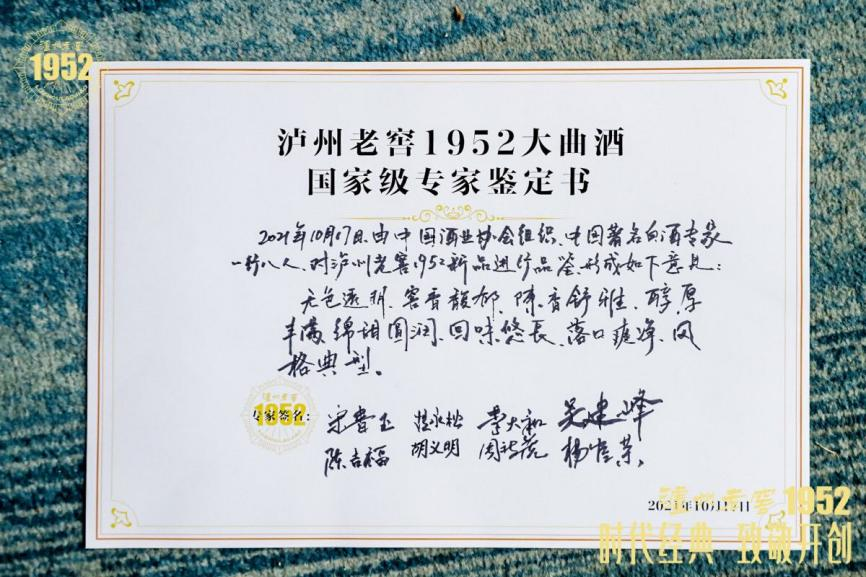 泸州老窖
1952
泸州老窖1952大曲酒
国家级专家鉴定书
2021年10月17日,由中国酒业协会组织、中国著名白酒专家
一行八人,对泸州老窖1952新品进行品鉴,形成如下意见:
无色透明、窖香馥郁、陈香舒雅、醇厚
丰满、绵甜圆润、回味悠长、落口爽净、风
格典型。
泸州老窖
1952
专家签名:
宋书玉 李大和 吴建峰
陈吉福 胡义明
泸州老窖1952
2021年10月
时代经典 致敬开创